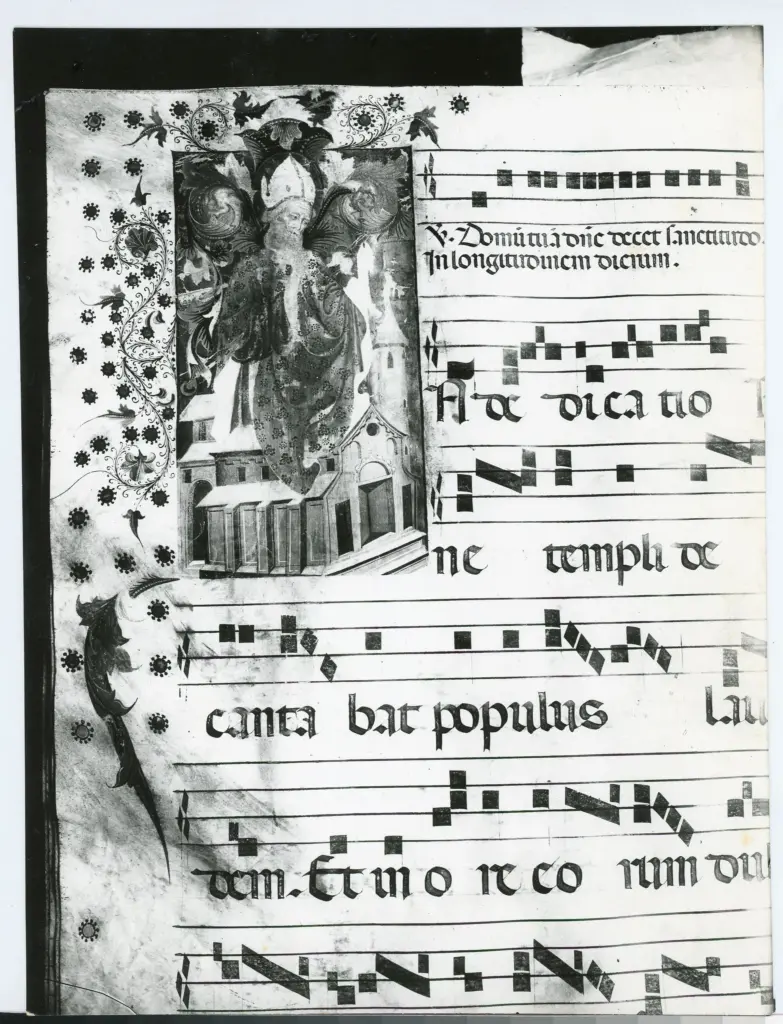 V. Domū tuā dn̄e decet sanctitudo.
In longitudinem dierum.
A de dica tio
ne templi de
canta bat populus lau
dem. Et in o re co rum dul